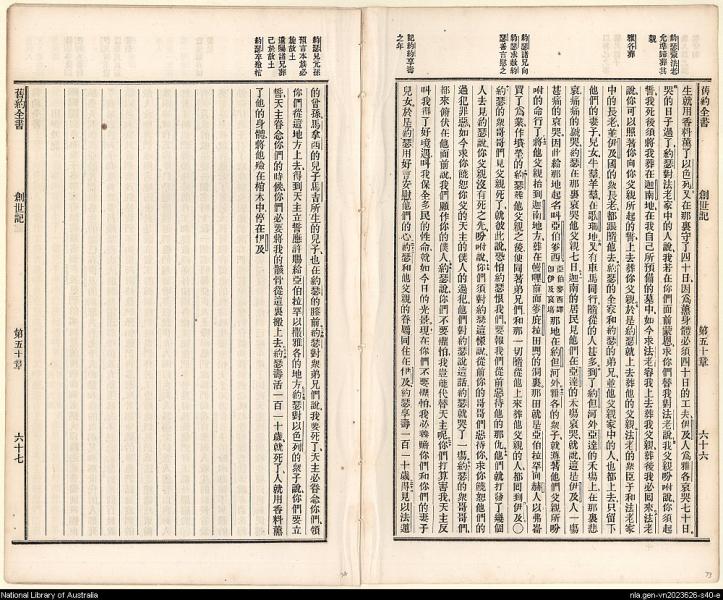 舊約全書
創世記
第五十章
六十六
約瑟葬法老
允准歸葬其
親
雅各葬
約瑟諸兄向
約瑟求赦約
瑟善言慰之
記約瑟享壽
之年
生就用香料薰了以色列又在那裏守了四十日因爲薰身體必須四十日的工夫伊及人爲雅各哀哭七十日
哭的日子過了約瑟對法老家中的人說我若在你們面前蒙恩求你們替我對法老說我父親吩咐說你須起
誓我死後須將我葬在迦南地在我自己所預備的墓中如今求法老容我上去葬我父親葬後我必回來法老
說你可以照著你向你父親所起的誓上去葬你父親於是約瑟就上去葬他的父親法老的衆臣子和法老家
中的長老並伊及國的衆長老都跟隨他去約瑟的全家和約瑟的弟兄並他父親家中的人也都上去只留下
他們的妻子兒女牛羣羊羣在歌珊地又有車馬同行隨從的人甚多到了約但河外亞達的禾場上在那裏悲
哀痛痛的號哭約瑟在那裏哀哭他父親七日迦南的居民見他們在亞達的禾場哀哭就說這是伊及人一場
甚痛的哀哭因此給那地起名叫亞伯麥西那地在約但河外雅各的衆子就遵著他們父親所吩
咐的命行了將他父親抬到迦南地方葬在幔哩前面麥庇拉田間的洞裏那田就是亞伯拉罕向赫人以弗崙
買了爲業作墳塋的約瑟葬他父親之後便同著弟兄們和那一切隨從他上來葬他父親的人都回到伊及○
約瑟的衆哥哥們見父親死了就彼此說恐怕約瑟恨我們要報我們從前惡待他的那仇他們就打發了幾個
人去見約瑟說你父親沒有死之先吩咐說你們須對約瑟這樣說從前你的哥哥們惡待你求你饒恕他們的
過犯罪惡如今求你饒恕你父的天主的僕人的過犯他們對約瑟說這話約瑟就哭了一場約瑟的衆哥哥們
都來俯伏在他面前說我們願作你的僕人約瑟說你們不要懼怕我豈能代替天主呢你們打算害我天主反
叫我得了好境遇叫我保全多民的性命就如今日的光景現在你們不要懼怕我必養贍你們和你們的妻子
兒女於是約瑟用好言安慰他們的心約瑟和他父親的眷屬同住在伊及約瑟享壽一百一十歲得見以法蓮
約瑟見元孫
預言本族必
旋故土
遺囑諸兄葬
己於故土
約瑟卒殮棺
的曾孫馬拿西的兒子馬吉所生的兒子也在約瑟的膝前約瑟對衆弟兄們說我要死了天主必眷念你們領
你們從這地方上去得到天主立誓應許賜給亞伯拉罕以撒雅各的地方約瑟對以色列的衆子說你們要立
誓天主眷念你們的時候你們必要將我的骸骨從這裏搬上去約瑟壽活一百一十歲就死了人就用香料薰
了他的身體將他殮在棺木中停在伊及
舊約全書
創世記
第五十章
六十七
National Library of Australia
nla.gen-vn2023626-s40-e